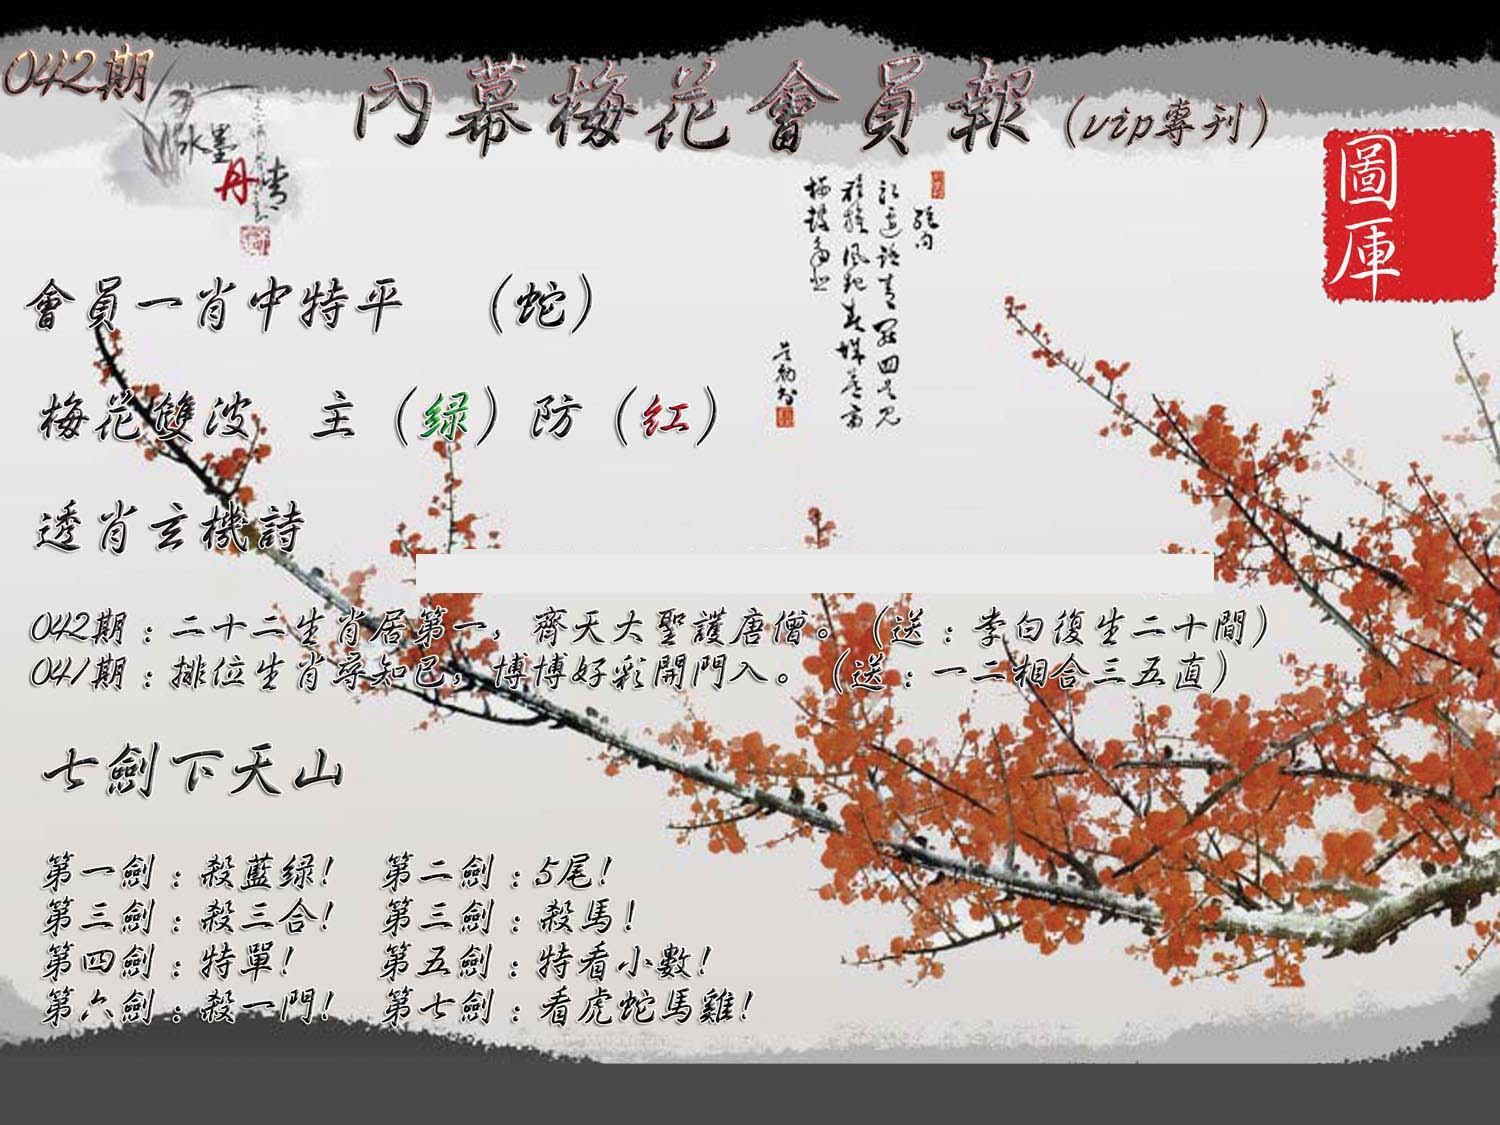 042期
內幕梅花會員報(vip專刊)
水墨
丹青
圖庫
會員一肖中特平 (蛇)
梅花雙波 主(绿)防(红)
透肖玄機詩
042期:二十二生肖居第一,齊天大聖護唐僧。(送:李白復生二十間)
041期:排位生肖穿知已,博博好彩開門入。(送:一二相合三五直)
七劍下天山
第一劍:殺藍绿! 第二劍:5尾!
第三劍:殺三合! 第三劍:殺馬!
第四劍:特單! 第五劍:特看小數!
第六劍:殺一門! 第七劍:看虎蛇馬雞!